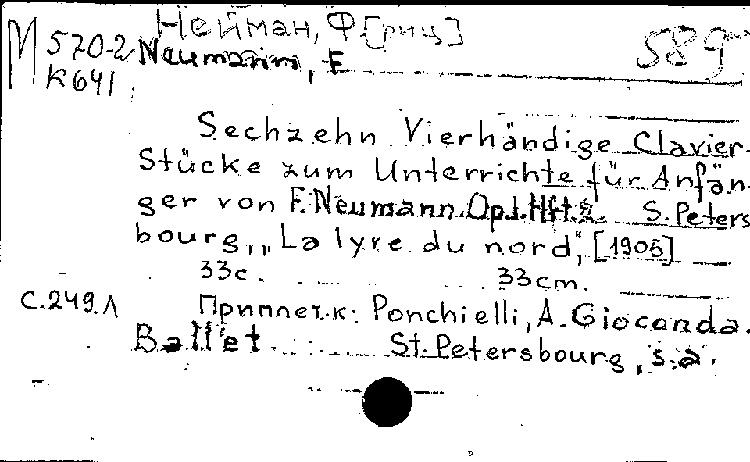 Нейман, Ф[риц]
М 570-2 Neumann, F 589
К 641
Sechzehn Vierhändige Clavier-
Stücke zum Unterrichte für Anfän-
ger von F. Neumann. Op.1. Hft 2. S. Peters
bourg, „La lyre du nord", [1905]
33с. 33cm.
С.249.Л Приплет.к: Ponchielli, A. Gioconda.
Ballet St. Petersbourg, s.a.